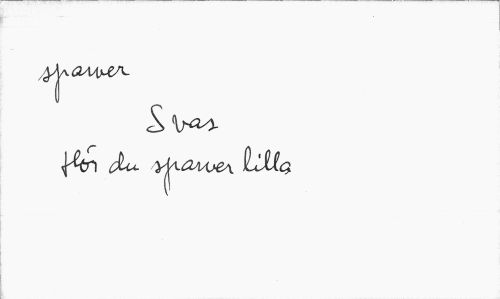 sparver
Svar
Hör du sparver lilla